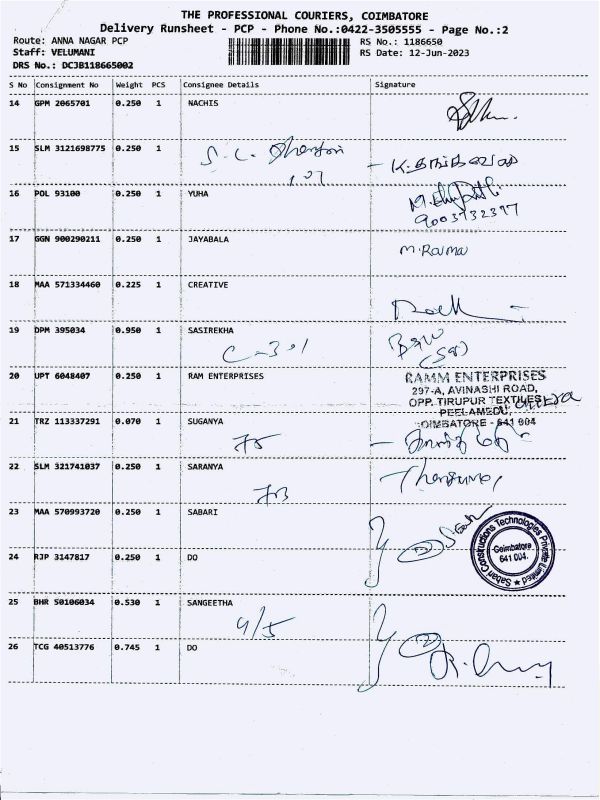 THE PROFESSIONAL COURIERS, COIMBATORE
Delivery Runsheet - PCP - Phone No.:0422-3505555 - Page No.:2
Route: ANNA NAGAR PCP RS No.: 1186650
Staff: VELUMANI RS Date: 12-Jun-2023
DRS No.: DCJB118665002
S No Consignment No Weight PCS Consignee Details Signature
14 GPM 2065701 0.250 1 NACHIS
15 SLM 3121698775 0.250 1
16 POL 93100 0.250 1 YUHA
9003732377
17 GGN 900290211 0.250 1 JAYABALA
M. Rama
18 MAA 571334460 0.225 1 CREATIVE
19 DPM 395034 0.950 1 SASIREKHA
C-301
20 UPT 6048407 0.250 1 RAM ENTERPRISES
RAMM ENTERPRISES
297-A, AVINASHI ROAD,
OPP. TIRUPUR TEXTILES
PEELAMEDU,
COIMBATORE - 641 004
21 TRZ 113337291 0.070 1 SUGANYA
75
22 SLM 321741037 0.250 1 SARANYA
73
23 MAA 570993720 0.250 1 SABARI
Saban Constructions Technologies Private Limited
Coimbatore
641 004.
24 RJP 3147817 0.250 1 DO
25 BHR 50106034 0.530 1 SANGEETHA
4/5
26 TCG 40513776 0.745 1 DO